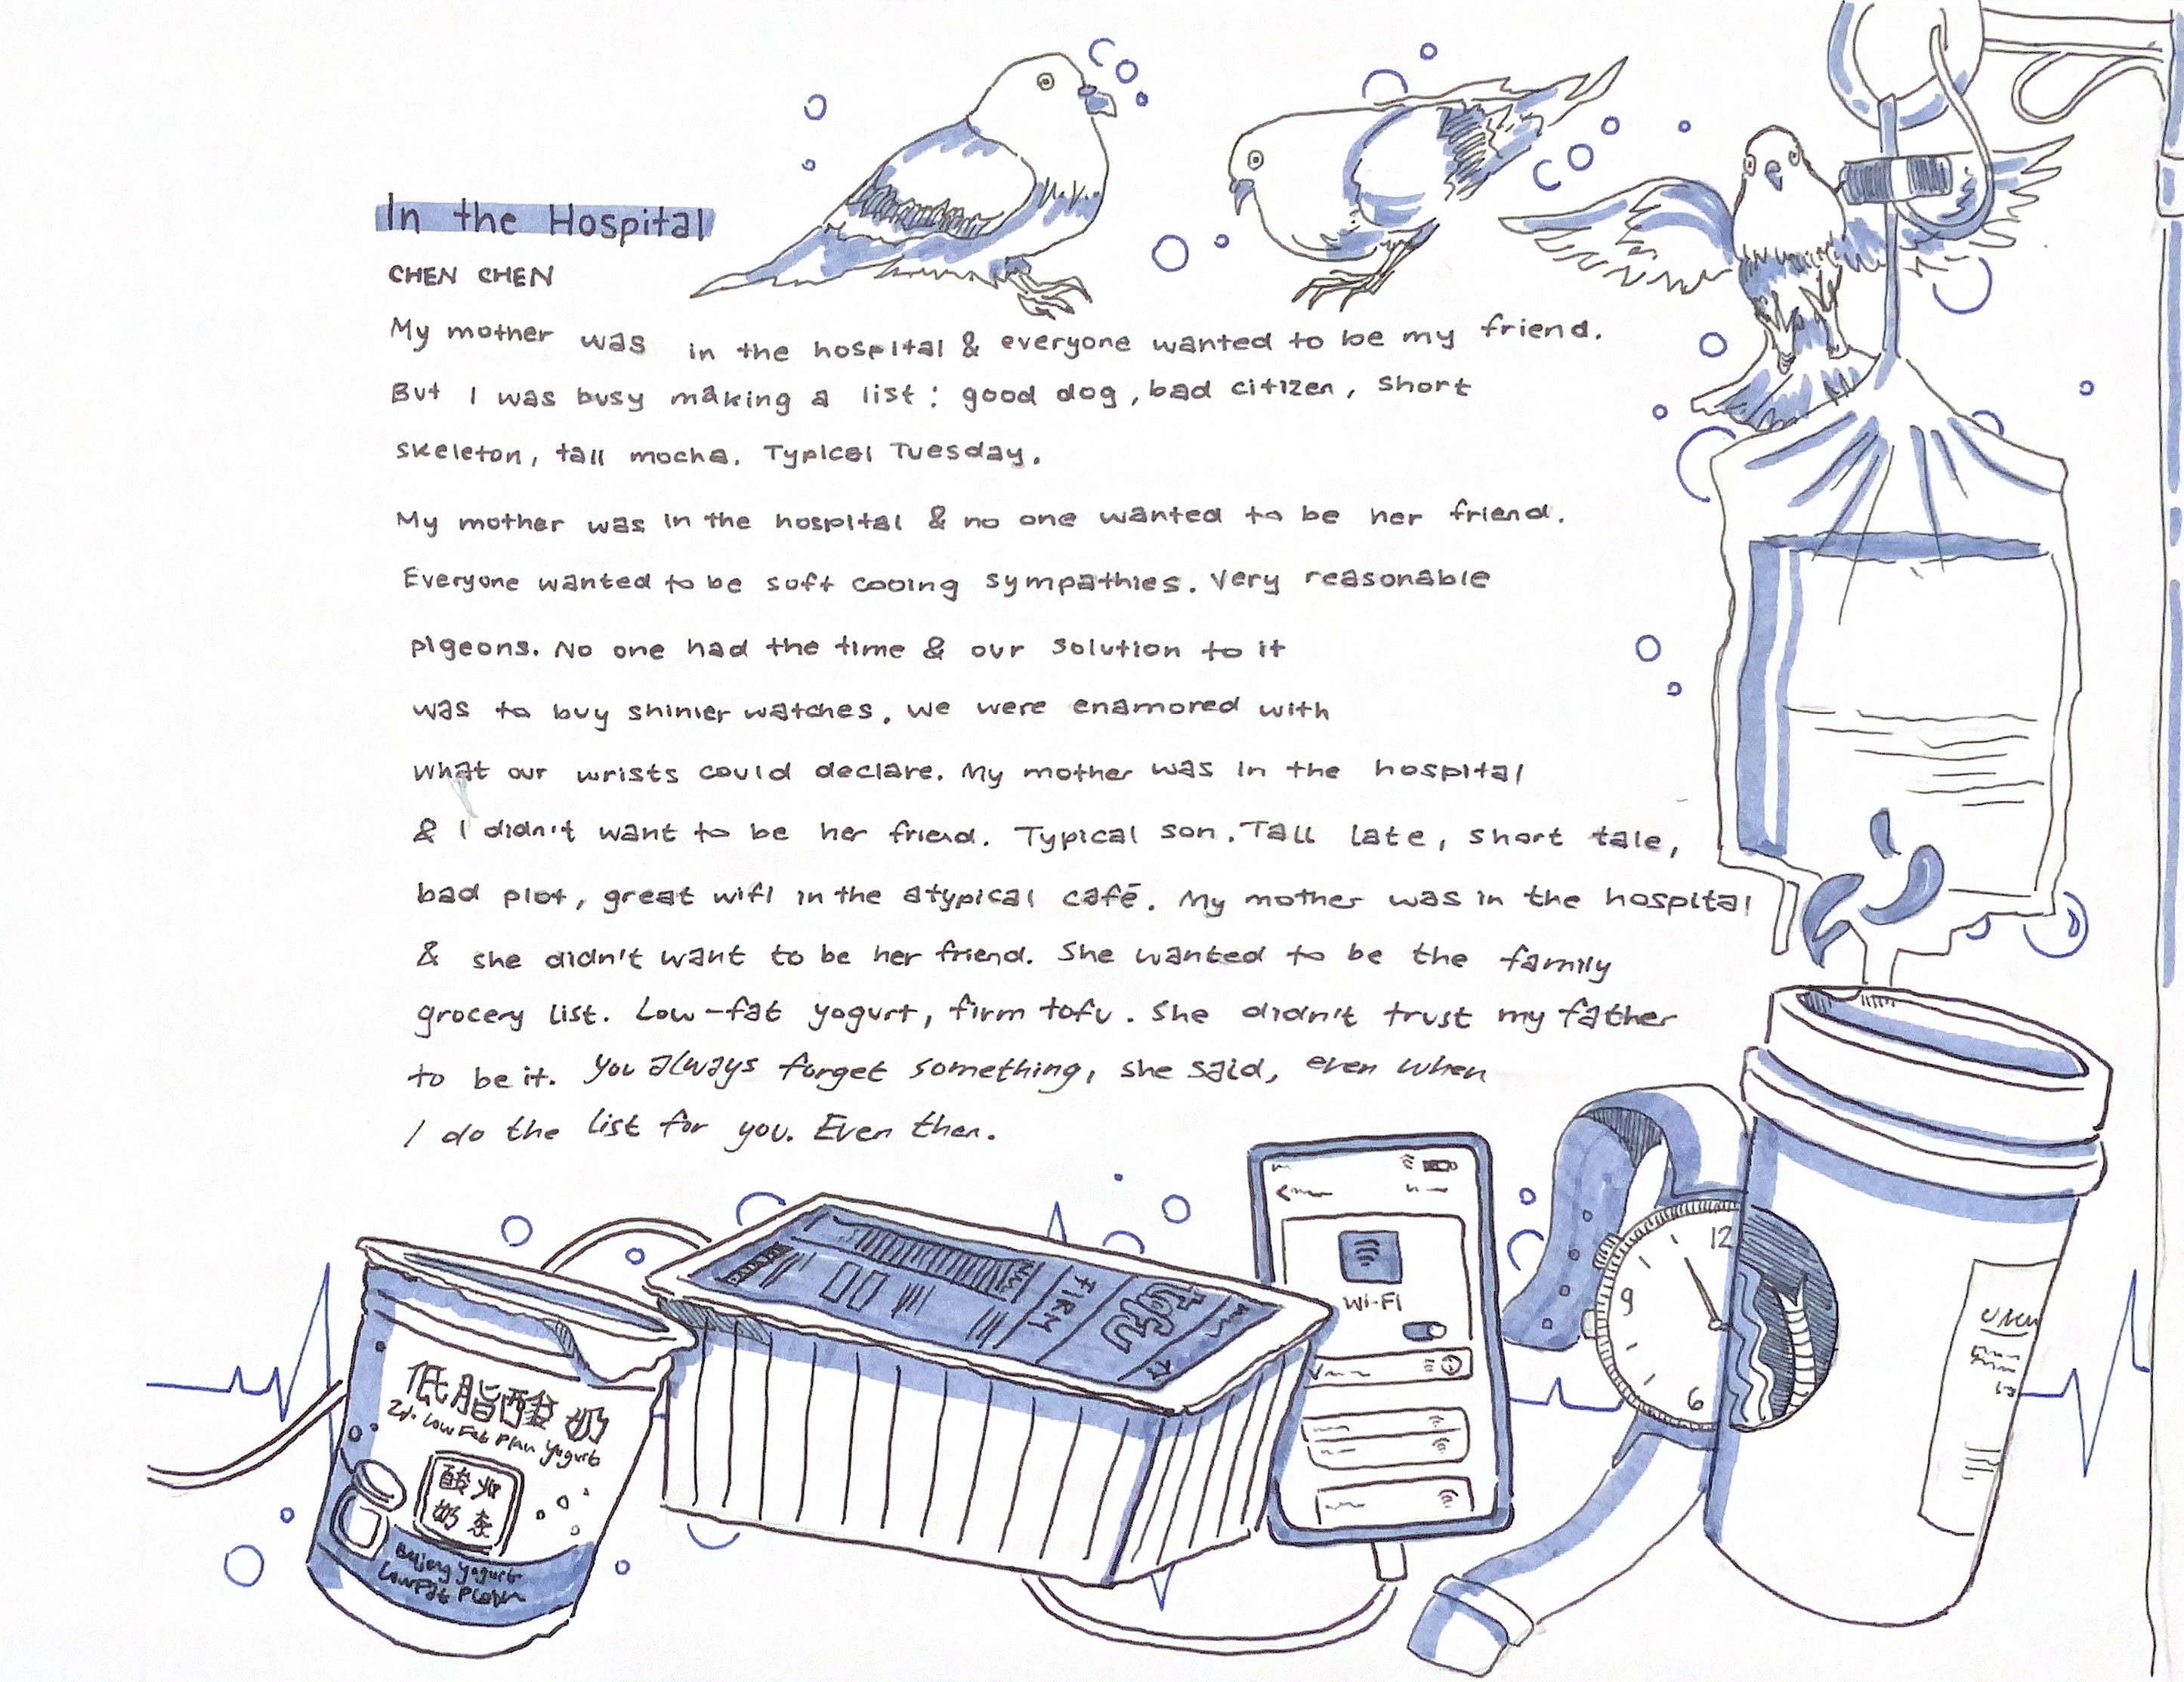 In the Hospital
CHEN CHEN
My mother was in the hospital & everyone wanted to be my friend.
But I was busy making a list: good dog, bad citizen, short
skeleton, tall mocha. Typical Tuesday.
My mother was in the hospital & no one wanted to be her friend.
Everyone wanted to be soft cooing sympathies. Very reasonable
pigeons. No one had the time & our solution to it
was to buy shinier watches. We were enamored with
what our wrists could declare. My mother was in the hospital
& I didn't want to be her friend. Typical son. Tall late, short tale,
bad plot, great wifi in the atypical café. My mother was in the hospital
& she didn't want to be her friend. She wanted to be the family
grocery list. Low-fat yogurt, firm tofu. She didn't trust my father
to be it. You always forget something, she said, even when
I do the list for you. Even then.
FIRM
tofu
Wi-Fi
12
9
6
低脂酸奶
Low Fat Plain Yogurt
酸
奶
Beijing Yogurt
LowFat